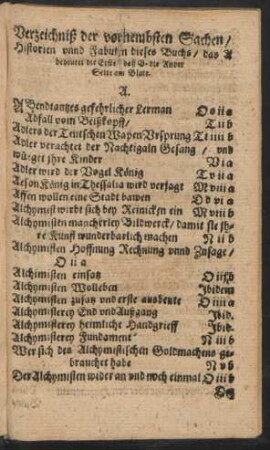 Verzeichniß der vornembsten Sachen /
Historien vnnd Fabulen dieses Buchs / das A
bedeutet die Erste / deß B die Ander
Seite am Blate.
A.
ABendtantzes gefehrlicher Lerman Oo ii a
Abfall vom Beißkopff / T ii b
Adlers der Teutschen Wapen Vrsprung T iiii b
Adler verachtet der Nachtigaln Gesang / vnd
würget jhre Kinder V i a
Adler wird der Vogel König T v ii a
Aeson König in Thessalia wird verjagt M viii a
Affen wollen eine Stadt bawen O v i a
Alchymist wirbt sich bey Reinicken ein M viii b
Alchymisten mancherley Bildwerck / damit sie jh-
re Kunst wunderbarlich machen N ii b
Alchymisten Hoffnung Rechnung vnnd Zusage /
O ii a
Alchimisten einsatz O ii b
Alchymisten Wolleben Ibidem
Alchymisten zusatz vnd erste ausbeute O iii a
Alchymisterey End vnd Außgang Ibid.
Alchymisterey heimliche Handgrieff Ib b.
Alchymisterey Fundament N iii b
Wer sich des Alchymistischen Goldmachens ge-
brauchet habe N v b
Der Alchymisten wider an vnd noch einmal O iii b